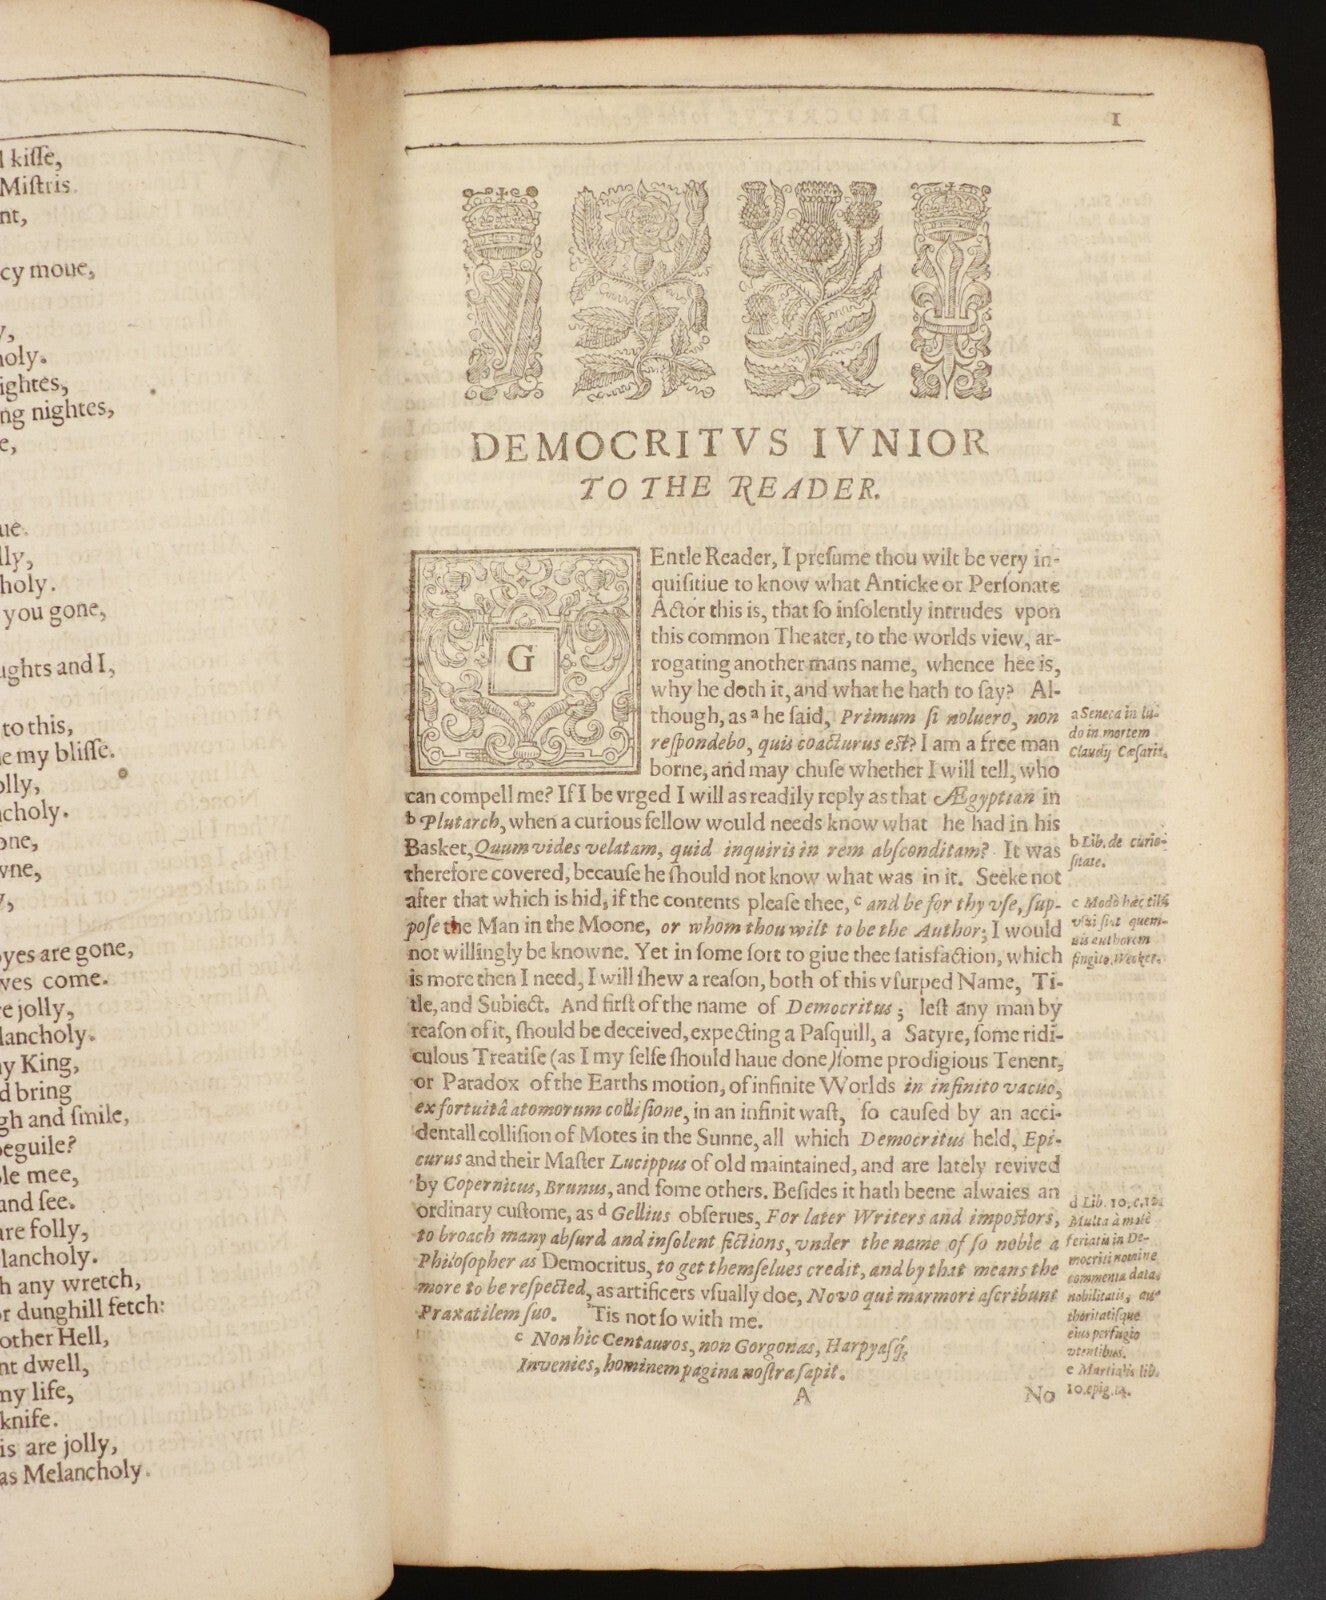 kiſſe,
Miſtris.
nt,
cy moue,
y,
holy.
ightes,
ng nightes,
e,
ue.
lly,
choly.
you gone,
ughts and I,
to this,
e my bliſſe.
olly,
ncholy.
one,
wne,
y,
oyes are gone,
ves come.
re jolly,
lancholy.
ny King,
d bring
gh and ſmile,
beguile?
ble mee,
and ſee.
are folly,
elancholy.
h any wretch,
or dunghill fetch:
other Hell,
nt dwell,
my life,
knife.
is are jolly,
as Melancholy.
1
DEMOCRITVS IVNIOR
TO THE READER.
GEntle Reader, I preſume thou wilt be very in-
quiſitiue to know what Anticke or Perſonate
Actor this is, that ſo inſolently intrudes vpon
this common Theater, to the worlds view, ar-
rogating another mans name, whence hee is,
why he doth it, and what he hath to ſay? Al-
though, as a he ſaid, Primum ſi noluero, non
reſpondebo, quis coacturus eſt? I am a free man
borne, and may chuſe whether I will tell, who
can compell me? If I be vrged I will as readily reply as that Ægyptian in
b Plutarch, when a curious fellow would needs know what he had in his
Basket, Quum vides velatam, quid inquiris in rem abſconditam? It was
therefore covered, becauſe he ſhould not know what was in it. Seeke not
after that which is hid, if the contents pleaſe thee, c and be for thy vſe, ſup-
poſe the Man in the Moone, or whom thou wilt to be the Author; I would
not willingly be knowne. Yet in ſome ſort to giue thee ſatisfaction, which
is more then I need, I will ſhew a reaſon, both of this vſurped Name, Ti-
tle, and Subiect. And firſt of the name of Democritus; leſt any man by
reaſon of it, ſhould be deceived, expecting a Paſquill, a Satyre, ſome ridi-
culous Treatiſe (as I my ſelfe ſhould haue done) ſome prodigious Tenent,
or Paradox of the Earths motion, of infinite Worlds in infinito vacuo,
ex fortuitâ atomorum colliſione, in an infinit waſt, ſo cauſed by an acci-
dentall colliſion of Motes in the Sunne, all which Democritus held, Epi-
curus and their Maſter Lucippus of old maintained, and are lately revived
by Copernicus, Brunus, and ſome others. Beſides it hath beene alwaies an
ordinary cuſtome, as d Gellius obſerues, For later Writers and impoſtors,
to broach many abſurd and inſolent fictions, vnder the name of ſo noble a
Philoſopher as Democritus, to get themſelues credit, and by that means the
more to be reſpected, as artificers vſually doe, Novo qui marmori aſcribunt
Praxatilem ſuo. 'Tis not ſo with me.
e Non hic Centauros, non Gorgonas, Harpyaſq́;
Invenies, hominem pagina noſtra ſapit.
A No
a Seneca in lu-
do in mortem
Claudij Cæſaris.
b Lib. de curio-
ſitate.
c Modò hæc tibi
vſui ſint quem-
vis authorem
fingito. Wecker.
d Lib. 10. c. 12.
Multa à malè
feriatis in De-
mocriti nomine
commenta data,
nobilitatis, au-
thoritatiſque
eius perfugio
vtentibus.
e Martialis lib.
10. epig. 14.